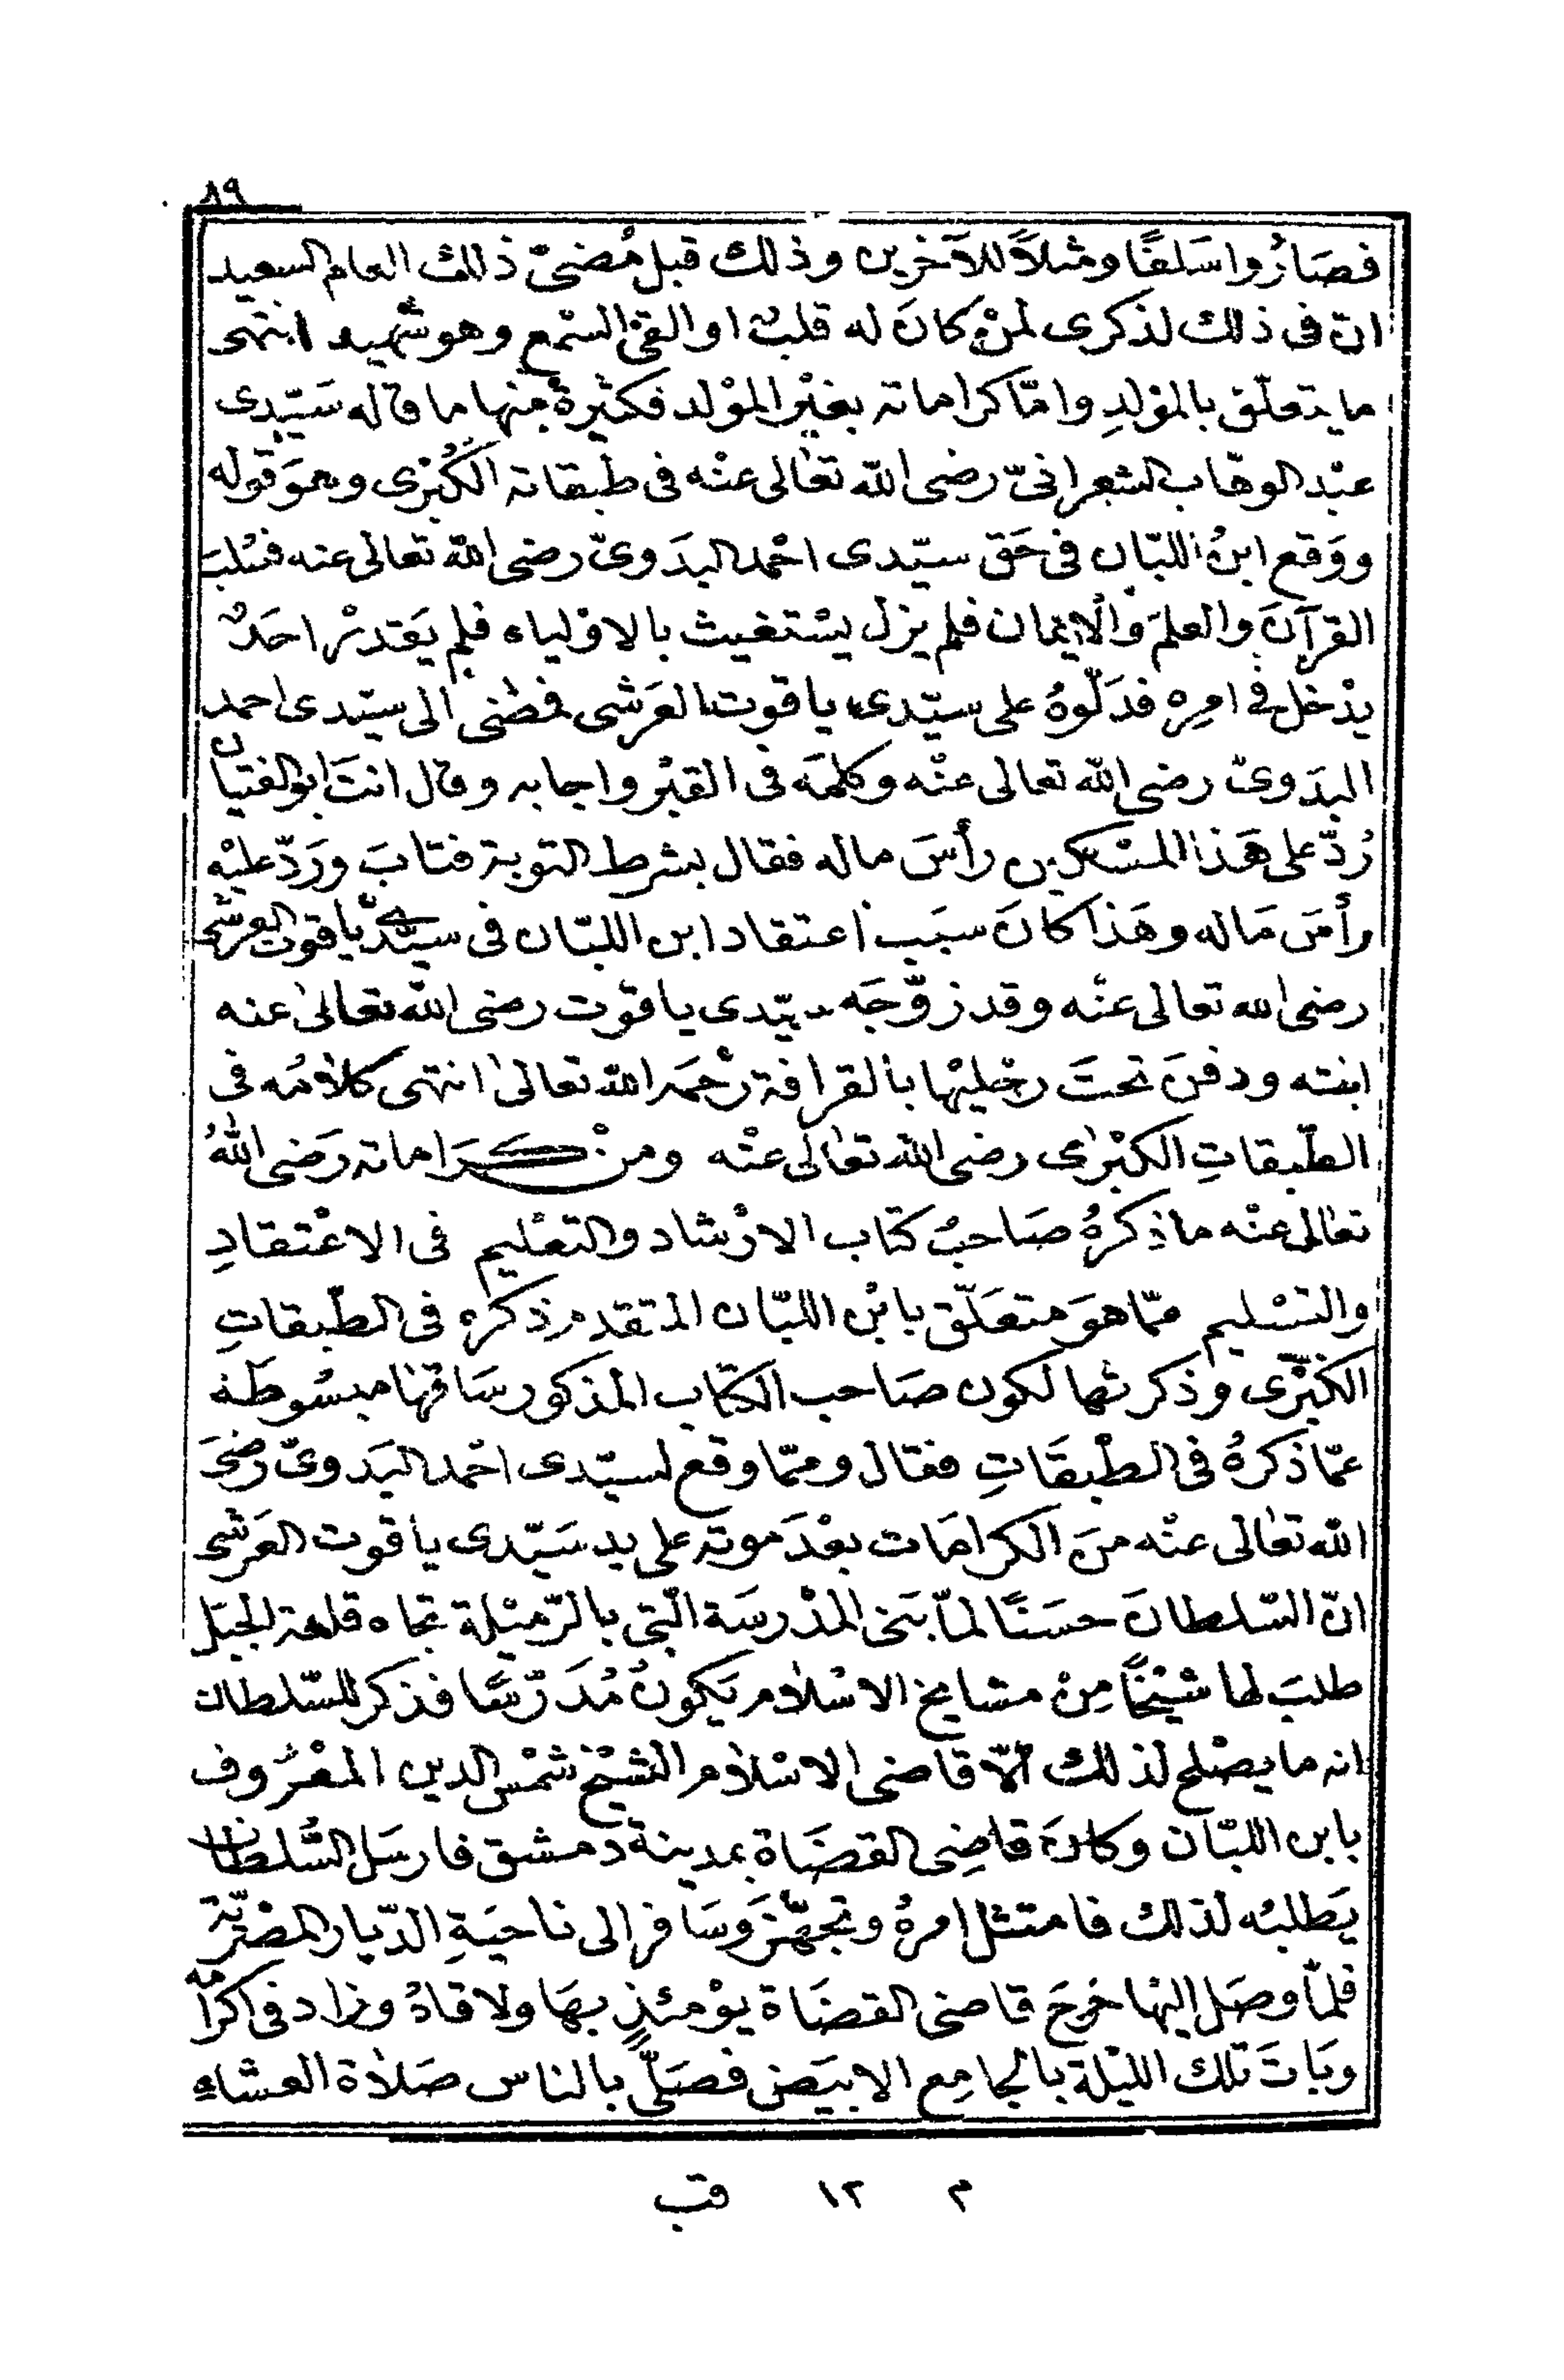 ٨٩
فصَارُوا سَلفًا ومثلاً للآخرين وذلك قبل مُضىّ ذلك العام السعيد
انّ فى ذلك لذكرى لمنْ كانَ له قلبٌ او القى السّمع وهو شهيد انتهى
ما يتعلّق بالموْلدِ وامّا كراماته بغيْر الموْلد فكثيرةٌ منها ما قاله سَيّدى
عبْد الوهّاب الشعرانىّ رضى اللّه تعالى عنْه فى طبقاته الكُبْرى وهوَ قوله
ووَقع ابنُ اللبّان فى حَق سيّدى احْمد البدَوىّ رضى اللّه تعالى عنه فسُلبَ
القرآنَ والعلمَ والْايمان فلم يزل يسْتغيث بالاوْلياء فلم يَقدرْ احَدٌ
يدْخل فى امرِه فدَلّوهُ على سيّدى ياقوت العَرشى فمضى الى سيّدى احمد
البدَوىّ رضى اللّه تعالى عنْه وكلّمَه فى القبْر واجابه وقال انتَ ابو الفتيان
رُدّ على هَذا المسْكين رأسَ ماله فقال بشرط التوبة فتابَ ورَدّ عليْه
رأسَ مَاله وهَذا كانَ سبَب اعتقاد ابن اللبّان فى سيّدى ياقوت العرشى
رضى الله تعالى عنْه وقد زوّجَه سيّدى ياقوت رضى اللّه تعالى عنه
ابنته ودفنَ تحتَ رجْليْها بالقرافة رحْمَه اللّه تعالى انتهى كلامُه فى
الطّبقاتِ الكبْرى رضى اللّه تعالى عنْه ومنْ كَرَاماته رَضى اللّهُ
تعالى عنْه ما ذكرهُ صَاحبُ كتاب الارْشاد والتعْليم فى الاعْتقادِ
والتسْليم ممّا هوَ متعَلّق بابْن اللبّان المتقدم ذكره فى الطّبقاتِ
الكبْرَى وذكرتها لكون صَاحب الكتاب المذكور سَاقها مبسُوطة
عمّا ذكرهُ فى الطبقَاتِ فقال وممّا وقع لسيّدى احْمد البَدوىّ رضىَ
اللّه تعالى عنْه منَ الكرامَات بعْدَ موته على يد سَيّدى ياقوت العَرشى
انّ السّلطانَ حسَنًا لمّا بَنى المدْرسَة الّتى بالرّميْلة تجاه قلعة الجبَل
طلبَ لها شيْخًا مِنْ مشايخ الاسْلام يَكونُ مُدَرّسًا فذكر للسّلطان
انه ما يصْلح لذلك الّا قاضى الاسْلام الشيْخ شمْس الدين المعْرُوف
بابن اللبّان وكانَ قاضِى القضَاة بمدينة دمشق فارسَل السُّلطان
يَطلبُه لذلك فامتثل امرهُ وتجهّزَ وسَافر الى ناحيَةِ الدّيار المصْريّة
فلمّا وصَل اليْها خرجَ قاضى القضَاة يوْمئذٍ بهَا ولاقاهُ وزاد فى اكرامه
وبَاتَ تلك الليْلة بالجامِع الابيَض فصَلّى بالناس صَلاة العشاء
م ١٢ قب